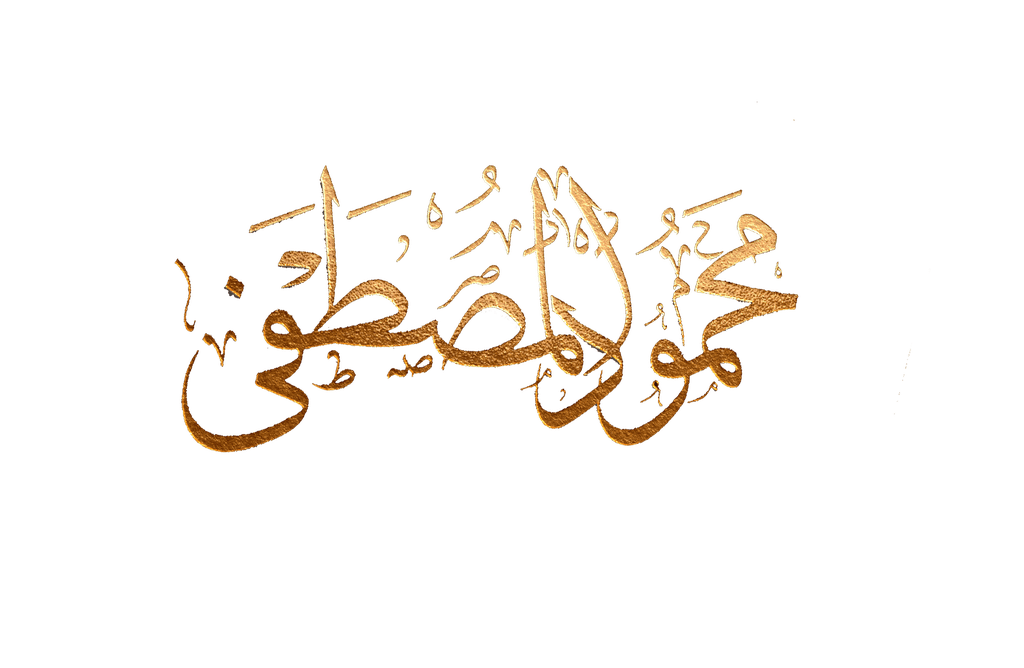 محمود المصطفى